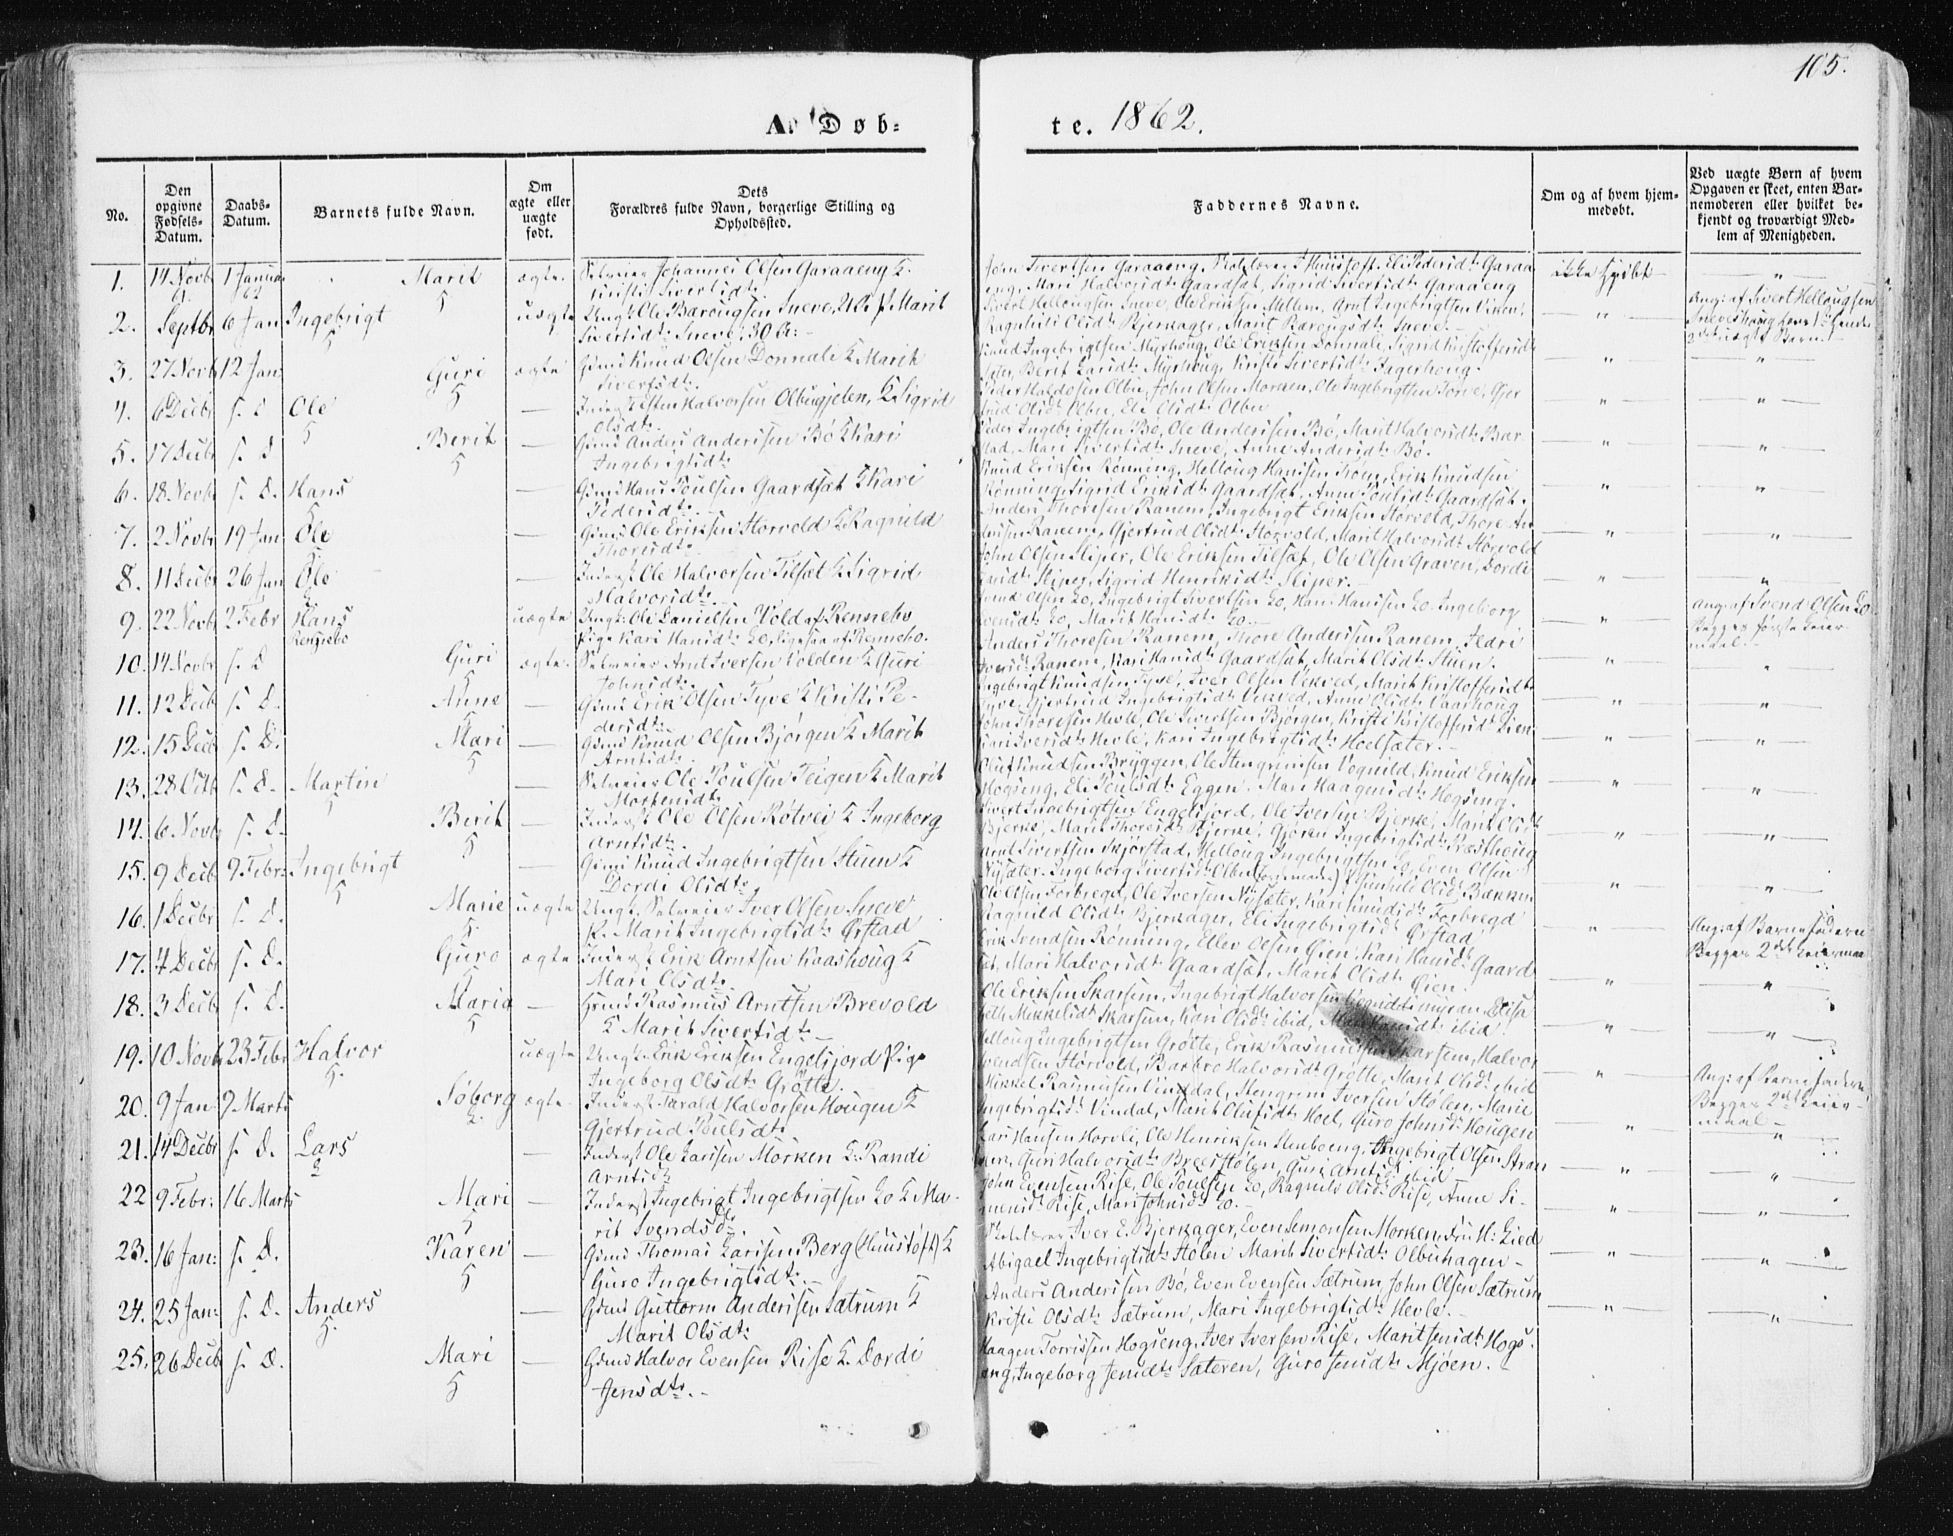 105.
A. Døb-
te. 1862.
No.
Den
opgivne
Fødsels-
Datum.
Daabs-
Datum.
Barnets fulde Navn.
Om
ægte eller
uægte
født.
Dets
Forældres fulde Navn, borgerlige Stilling og
Opholdssted.
Faddernes Navne.
Om og af hvem hjem-
medøbt.
Ved uægte Børn af hvem
Opgaven er skeet, enten Bar-
nemoderen eller hvilket be-
kjendt og troværdigt Med-
lem af Menigheden.
1. 14 Novb 1 Januar Marit ægte. Selveier Johannes Olsen Garaaeng &
Kristi Sivertsdt.
John Sivertsen Garaaeng, Eli Pedersdt. Garaa
eng, Mari Halvorsdt. Gaardsæt, Sigrid Sivertsdt. Garaaeng
ikke hjdøbt
2. Septbr 6 Jan Ingebrigt uægte Ungk. Ole Baarougsen Sneve, & P. Marit
Sivertsdt. Sneve, 30 A:
Sivert Hellougsen Sneve, Ole Eriksen Mellem, Arnt Ingebrigtsen
Ragnhild Olsdt. Bjerkager, Marit Sneve.
Ang: af Sivert Hellougsen
3. 27 Novb 12 Jan: Guri ægte Gmd Knud Olsen Donnali & Marit
Sivertsdt.
Knud Ingebrigtsen Myrhoug, Ole Eriksen Donnali, Sigrid Kristoffersdt.
Berit Larsdt. Myrhoug, Kristi Sivertsdt. Fagerhoug.
4. 6 Decbr s. D Ole — Inderst Esten Halvorsen Olbugjelen, & Sigrid
Olsdt.
Peder Haldosen Olbu, John Olsen Morken, Ole Ingebrigtsen
Olsdt. Olbu, Eli Olsdt. Olbu
5. 17 Decbr s. D Berit — Gmd Anders Andersen Bö & Kari
Ingebrigtsdt.
Peder Ingebrigtsen Bö, Ole Andersen Bö, Marit Halvorsdt.
Mari Sivertsdt. Sneve, Anne Andersdt. Bö.
6. 18 Novb s. D. Hans — Gmd Hans Poulsen Gaardsæt & Kari
Pedersdt.
Knud Eriksen Rønning, Helloug Hansen Erik Knudsen
Rønning, Sigrid Eriksdt. Gaardsæt, Anne Poulsdt. Gaardsæt.
7. 2 Novbr 19 Jan Ole — Gmd Ole Eriksen Storvold & Ragnild
Thoresdt.
Anders Thoresen Ranem, Ingebrigt Eriksen Storvold, Thore An
dersen Ranem, Gjertrud Olsdt. Storvold, Marit Halvorsdt. Storvold
8. 11 Decbr 26 Jan Ole — Inderst Ole Halvorsen Tilsæt & Sigrid
Halvorsdt.
John Olsen Sliper, Ole Eriksen Tilsæt, Ole Olsen Graven, Dordi
Larsdt. Sliper, Sigrid Henriksdt. Sliper.
9. 22 Novbr 2 Febr Hans
Rennebo
uægte Ungk. Ole Danielsen Vold af Rennebo
Pige Kari Hansdt. Lo, ligesaa af Rennebo.
Svend Olsen Lo, Ingebrigt Sivertsen Lo, Hans Hansen Lo, Ingeborg
Svendsdt. Lo, Marit Hansdt. Lo.
Ang: af Svend Olsen Lo
Begges første Leier-
maal.
10. 14 Novbr s. D Guri ægte. Selveier Arnt Iversen Volden & Guri
Johnsdt.
Anders Thoresen Ranem, Thore Andersen Ranem,
Iversdt. Ranem, Kari Hansdt. Gaardsæt, Marit Olsdt. Stuen.
11. 12 Decb s. D. Anne — Gmd Erik Olsen Tyve & Kristi Pe-
dersdt.
Ingebrigt Knudsen Tyve, Iver Olsen Vekved, Marit Kristoffersdt.
Tyve, Gjertrud Ingebrigtsdt. Vekved, Anne Olsdt. Vaarhoug
12. 15 Decb s. D. Mari — Gmd Knud Olsen Bjørgen & Marit
Arntsdt.
John Thoresen Hevle, Ole Sivertsen Bjørgen, Kristi Kristoffersdt. Lien
Kari Iversdt. Hevle, Kari Ingebrigtsdt. Hoelsæter.
13. 28 Octb s. D. Martin — Selveier Ole Poulsen Teigen & Marit
Mortensdt.
Oluf Knudsen Bryggen, Ole Stengrimsen Vognild, Knud Eriksen
Hogseng, Eli Poulsdt. Eggen, Mari Haagensdt. Hogseng.
14. 6 Novbr s. D. Berit — Inderst Ole Olsen Røtvei & Ingeborg
Arntsdt.
Sivert Ingebrigtsen Engelsjord, Ole Iversen Bjerke, Marit Olsdt.
Bjerke, Marit Thoresdt. Bjerke, Gjøren Ingebrigtsdt. Præsthoug
15. 9 Decb 9 Febr: Ingebrigt — Gmd Knud Ingebrigtsen Stuen &
Dordi Olsdt.
Arnt Sivertsen Skjørstad, Helloug Ingebrigtsen Lo, Even Olsen
Nysæter, Ingeborg Sivertsdt. Olbu, Gunhild Olsdt.
16. 1 Decbr s. D. Marie uægte Ungk. Selveier Iver Olsen Sneve
P. Marit Ingebrigtsdt. Ørstad
Ole Olsen Forbregd, Ole Iversen Nysæter, Kari Knudsdt. Forbregd
Ragnild Olsdt. Bjerkager, Eli Ingebrigtsdt. Ørstad
Ang: af Barnefaderen
Begges 2det Leiermaal
17. 4 Decbr s. D. Guro ægte Inderst Erik Arntsen Kaashoug &
Mari Olsdt.
Erik Svendsen Rønning, Ellev Olsen Øien, Kari Hansdt. Gaard
sæt, Mari Halvorsdt. Gaardsæt, Marit Olsdt. Øien.
18. 3 Decbr s. D. Maria — Gmd Rasmus Arntsen Brevold
& Marit Sivertsdt.
Ole Eriksen Skarsem, Ingebrigt Halvorsen Elisa
beth Mikkelsdt. Skarsem, Kari Olsdt. ibid, ibid.
19. 10 Novb 23 Febr Halvor uægte Ungk. Erik Eriksen Engelsjord Pige
Ingeborg Olsdt. Grötte.
Helloug Ingebrigtsen Grötte, Erik Rasmussen Skarsem, Halvor
Svendsen Storvold, Barbro Halvorsdt. Grötte, Marit Olsdt. ibid
Ang: af Barnefaderen
Begges 2det Leier-
maal
20. 9 Jan 9 Marts Søborg ægte. Inderst Harald Halvorsen Hougen &
Gjertrud Poulsdt.
Mikkel Rasmussen Vindal, Stengrim Iversen Stølen, Marie
Ingebrigtsdt. Vindal, Marit Olufsdt. Hoel, Guro Johnsdt. Hougen
21. 14 Decbr s. D. Lars — Inderst Ole Larsen Morken & Randi
Arntsdt
Lars Hansen Horvli, Ole Henriksen Stenboeng, Ingebrigt Olsen Stran
Guri Halvorsdt. Breestølen, Guri Arntsdt. ibid
22 9 Febr: 16 Marts Mari — Inderst Ingebrigt Ingebrigtsen Lo & Ma-
rit Svendsdt.
John Evensen Rise, Ole Poulsen Lo, Ragnild Olsdt. Rise, Anne Si-
mensdt. Rise, Mari Johnsdt. Lo.
23. 16 Jan: s. D. Karen — Gmd Thomas Larsen Berg (Huustoft) &
Guro Ingebrigtsdt.
Iver E. Bjerkager, Even Simonsen Morken,
Abigael Ingebrigtsdt. Stølen Marit Sivertsdt. Olbuhagen
24. 25 Jan: s. D. Anders — Gmd Guttorm Andersen Sætrum &
Marit Olsdt.
Anders Andersen Bö, Even Evensen Sætrum, John Olsen Sætrum
Kristi Olsdt. Sætrum, Mari Ingebrigtsdt. Hevle.
25. 26 Decb s. D. Mari — Gmd Halvor Evensen Rise & Dordi
Jensdt.
Haagen Torrisen Hogseng, Iver Iversen Rise, Marit Jensdt. Hogs-
eng, Ingeborg Jensdt. Sæteren, Guro Jensdt. Mjøen.